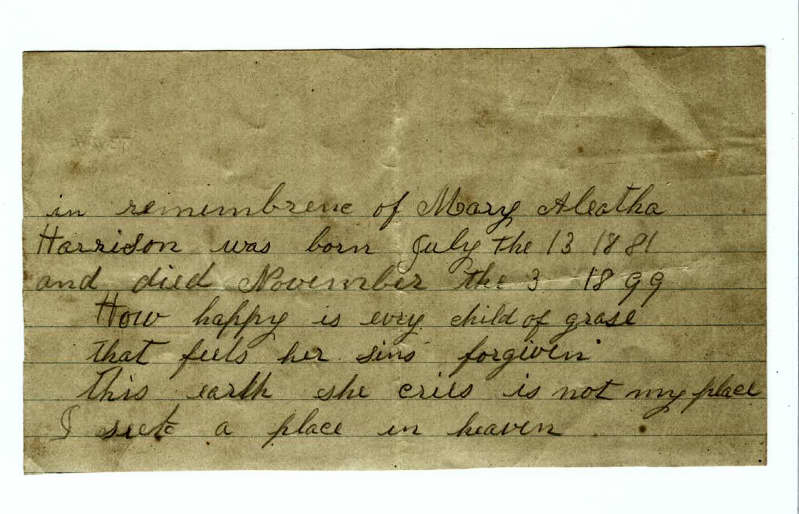 in remembrene of Mary Aleatha
Harrison was born July the 13 1881
and died November the 3 1899
How happy is every child of grase
that feels her sins forgiven
this earth she cries is not my place
I seek a place in heaven